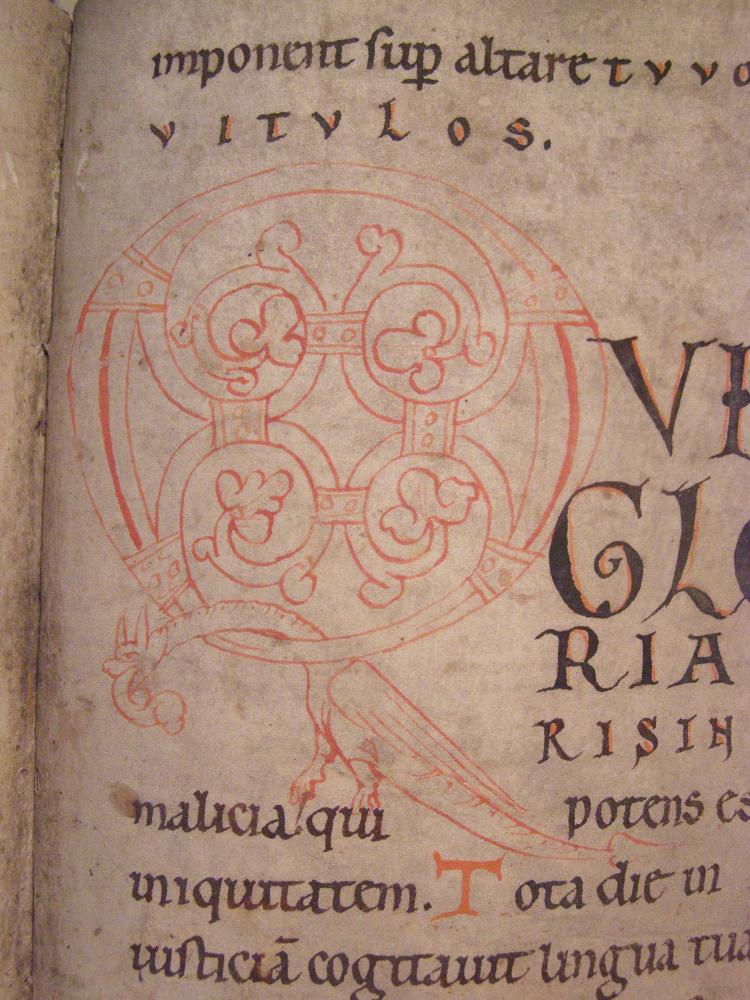 imponent sup altare tvvo
vitvlos.
QVI
GLO
RIA
RISIN
malicia qui potens es
iniquitatem. Tota die in
iusticiā cogitauit lingua tua